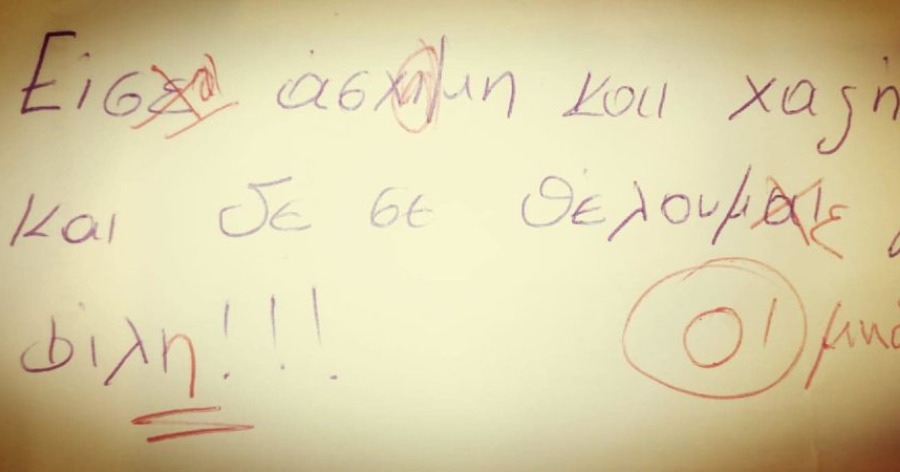 Είσαι άσχημη και χαζή
και δε σε θέλουμε
φίλη!!!
01